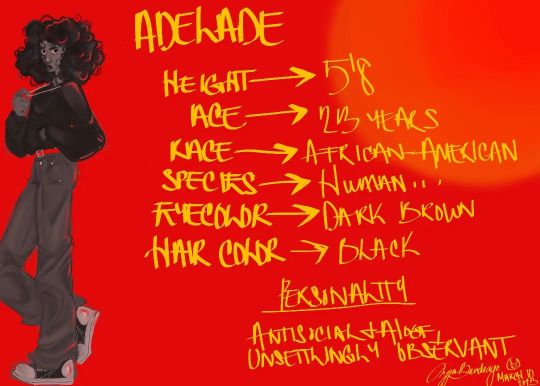 ADELADE
HEIGHT → 5'8
AGE → 23 YEARS
RACE → AFRICAN-AMERICAN
SPECIES → HUMAN...
EYECOLOR → DARK BROWN
HAIR COLOR → BLACK
PERSONALITY
ANTISOCIAL + ALOOF,
UNSETTLINGLY OBSERVANT
MARCH